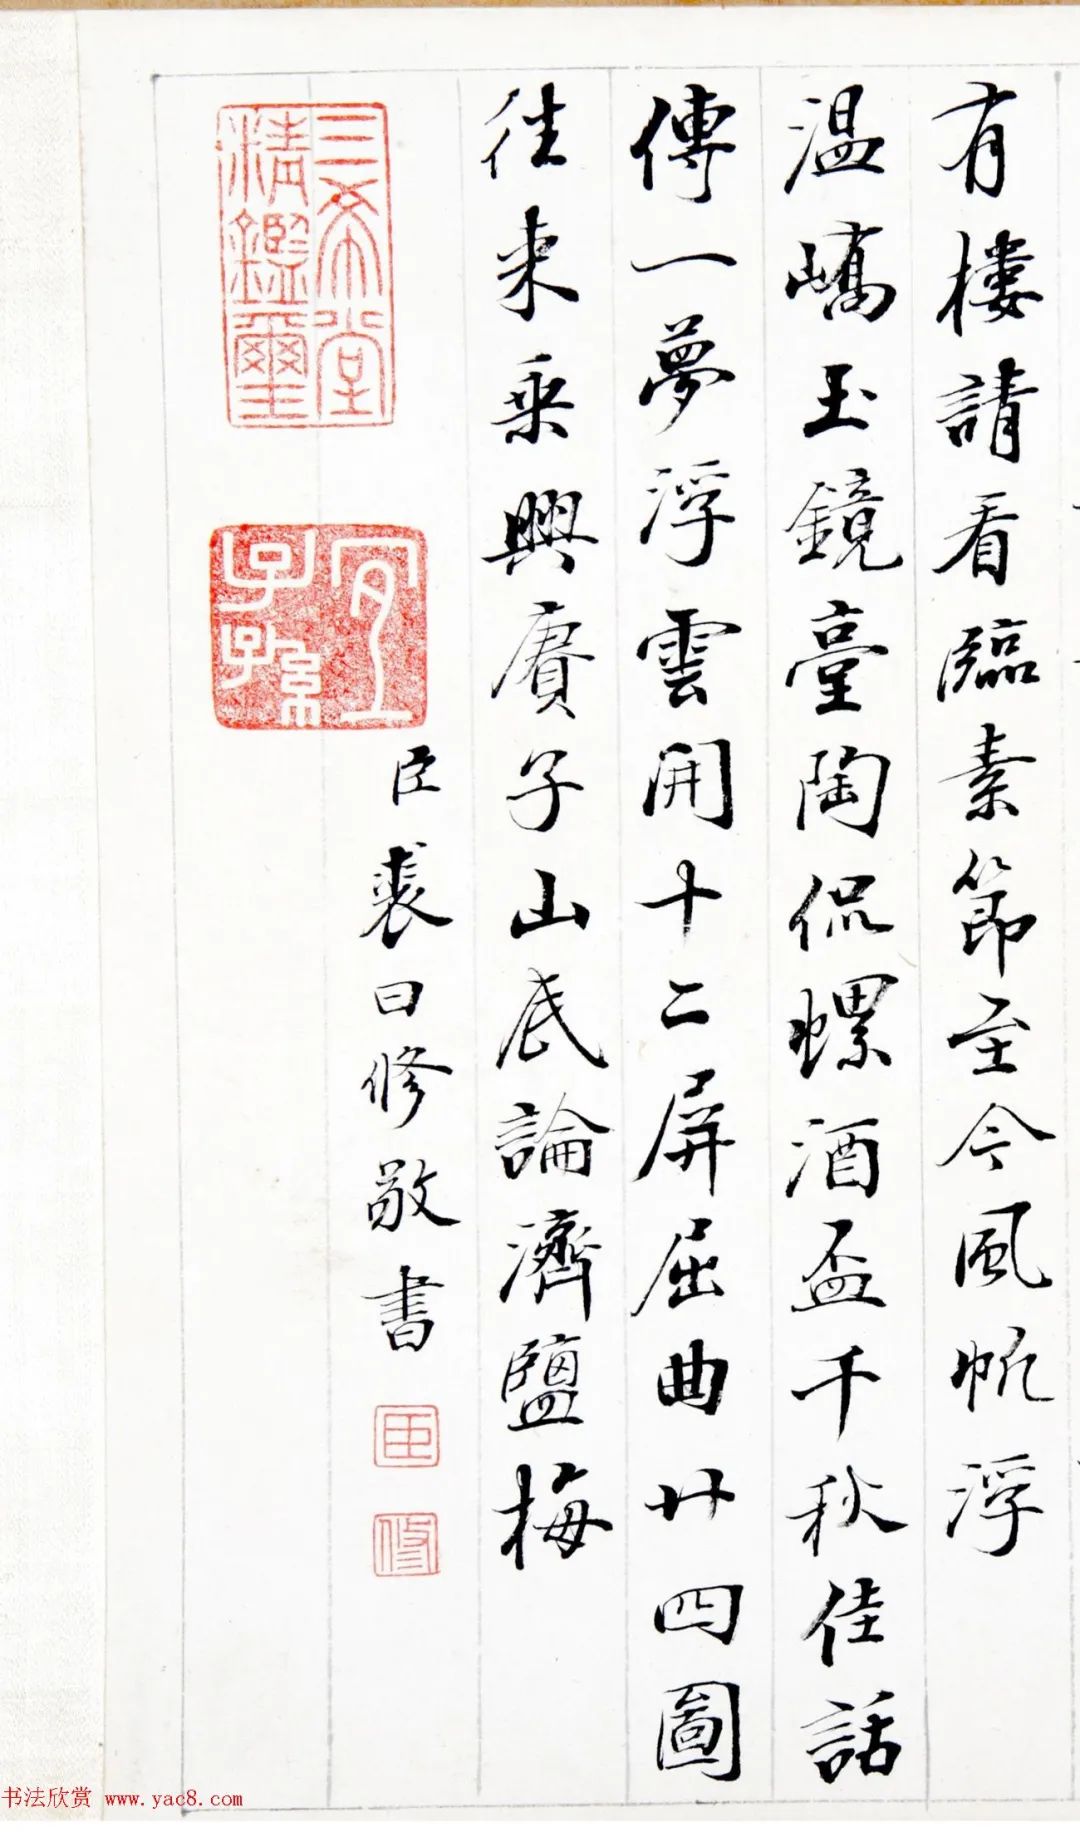 有樓請看臨素節至今風帆浮
温嶠玉鏡臺陶侃螺酒盃千秋佳話
傳一夢浮雲開十二屏屈曲廿四圖
往來乘興賡子山底論濟鹽梅
臣裘曰修敬書
臣
修
三希堂
精鑑璽
宜
子孫
书法欣赏 www.yac8.com